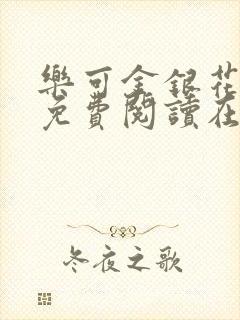 樂可金銀花
免費閱讀在
冬夜之歌